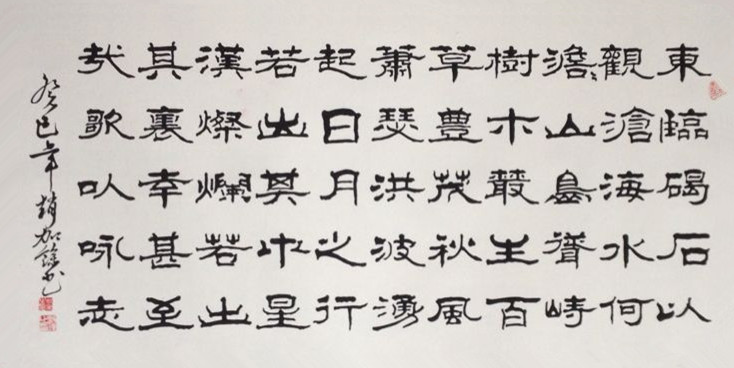 東臨碣石以
觀滄海水何
澹〻山島聳峙
樹木叢生百
草豊茂秋風
蕭瑟洪波湧
起日月之行
若出其中星
漢燦爛若出
其裏幸甚至
哉歌以咏志
癸巳年趙加书